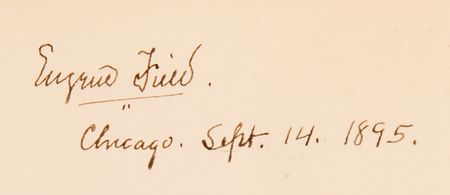 Eugene Field.
Chicago. Sept. 14. 1895.